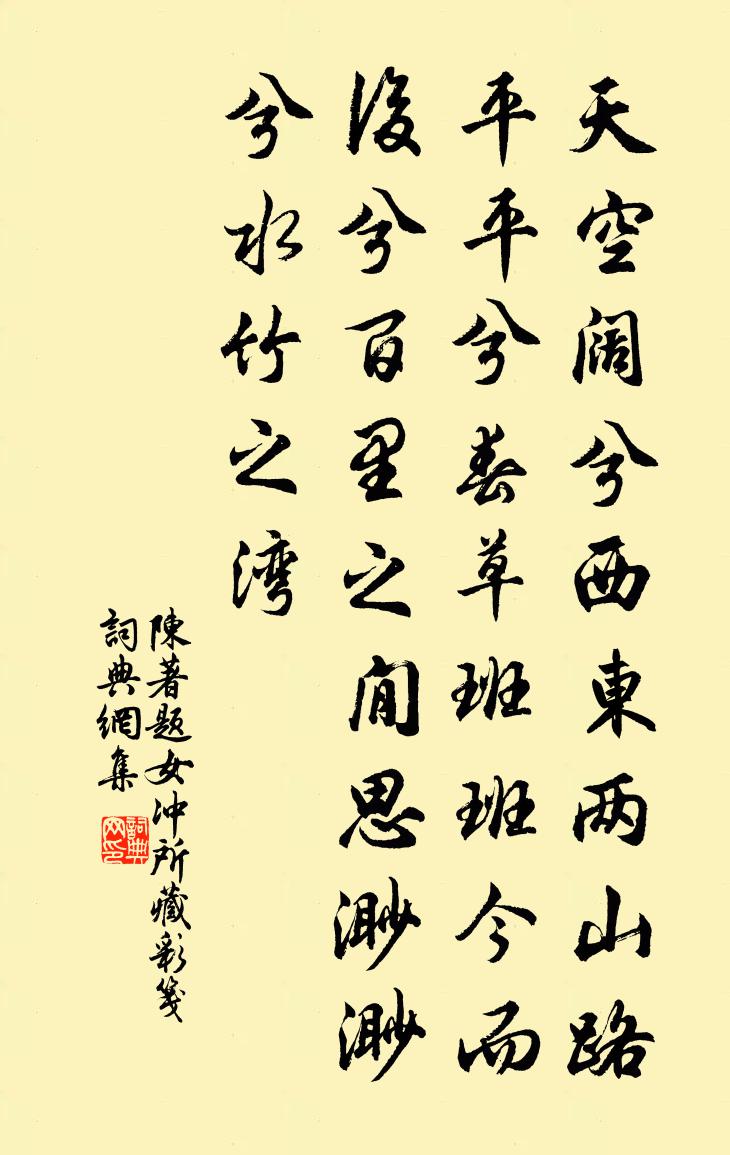 天空阔兮西東两山路
平平兮春草班班今而
後兮百里之间思渺渺
兮水竹之湾
陳著題女冲所藏彩箋
詞典網集
詞典网印